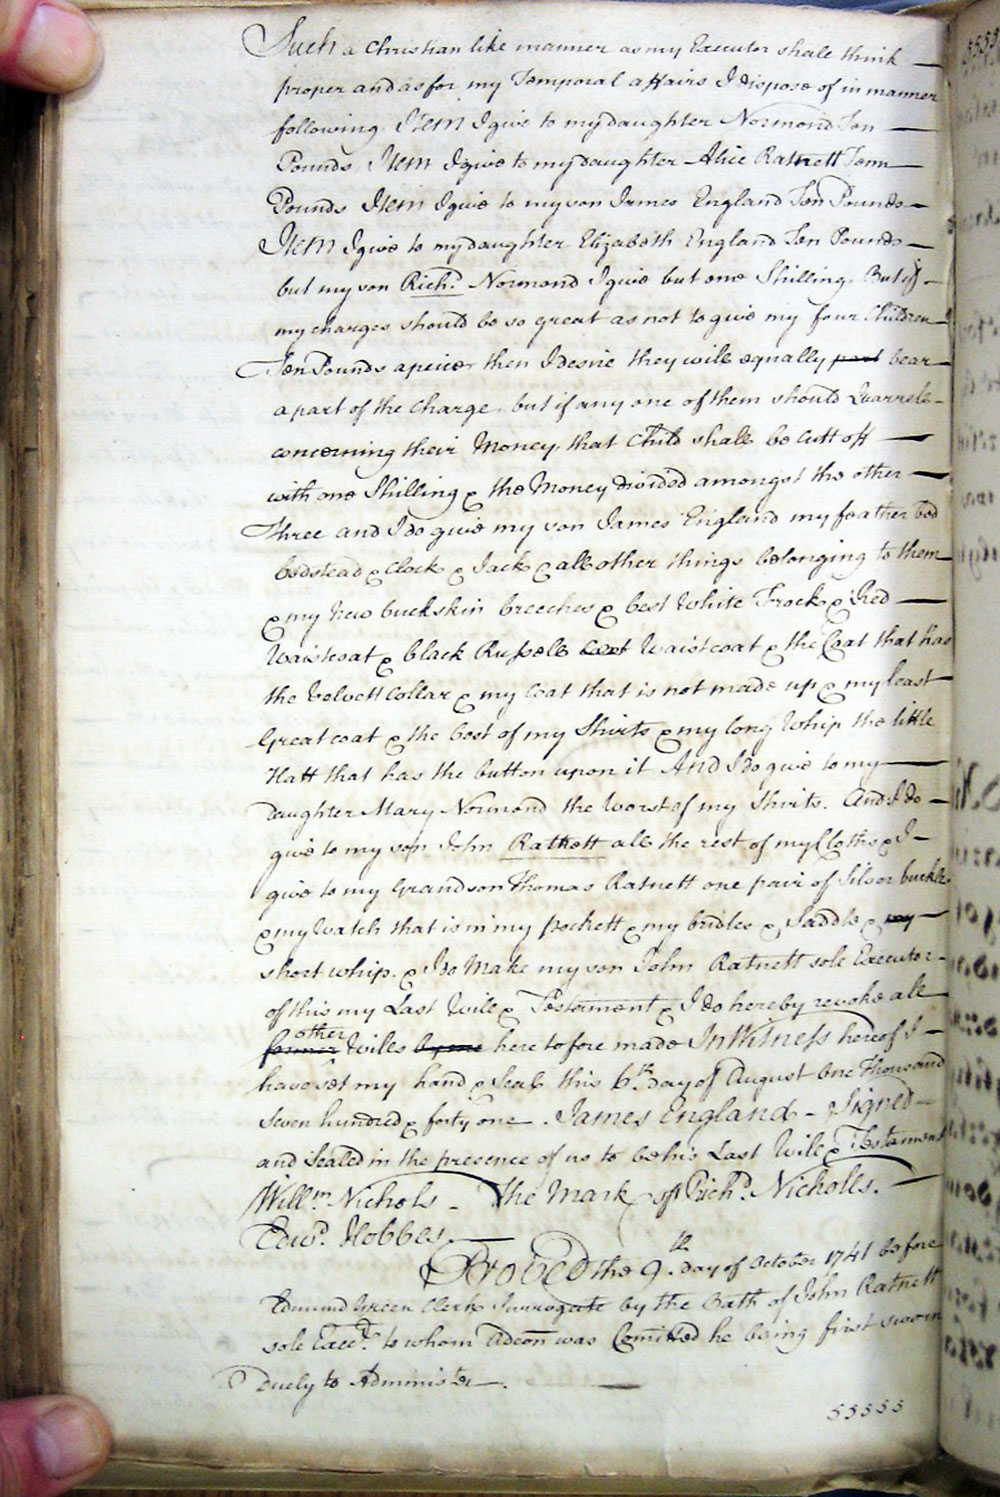 Such a Christian like manner as my Executor shall think
proper and as for my Temporal affairs I dispose of in manner
following. Item I give to my daughter Normond Ten
Pounds Item I give to my daughter Alice Ratnett Tenn
Pounds Item I give to my son James England Ten Pounds
Item I give to my daughter Elizabeth England Ten Pounds
but my son Richd. Normond I give but one Shilling, But if
my charges should be so great as not to give my four Children
Ten Pounds apeice then I desire they will equally part bear
a part of the Charge, but if any one of them should Quarrele
concerning their Money, that Child shall be Cutt off
with one Shilling & the Money divided amongst the other
Three and I do give my son James England my feather bed
bedstead & Clock & Jack & all other things belonging to them
& my New buckskin breeches & best White Frock & Red
Waistcoat & black Russell Coat Waistcoat & the Coat that has
the Velvett Collar & my Coat that is not made up & my least
Great coat & the best of my Shirts & my long Whip the little
Hatt that has the button upon it And I do give to my
Daughter Mary Normond the Worst of my Shirts. And I do
give to my son John Ratnett all the rest of my Cloths & I
give to my Grandson Thomas Ratnett one pair of Silver buckles
& my Watch that is in my pockett & my bridles & Saddle & my
short whip. & I do Make my son John Ratnett sole Executor
of this my Last Will & Testament & I do hereby revoke all
other
former Wills by me here to fore made In Witness hereof I
have set my hand & Seal this 6th. day of August One Thousand
Seven hundred & forty one. James England - Signed
and Sealed in the presence of us to be his Last Will & Testament
Willm. Nichols - The Mark of Richd. Nicholls.
Edwd. Hobbes.
Proved the 9th. day of October 1741 before
Edmund Green Clerk Surrogate by the Oath of John Ratnett
sole Execr. to whom Adcon was Comitted he being first sworn
Duely to Administer.
55555